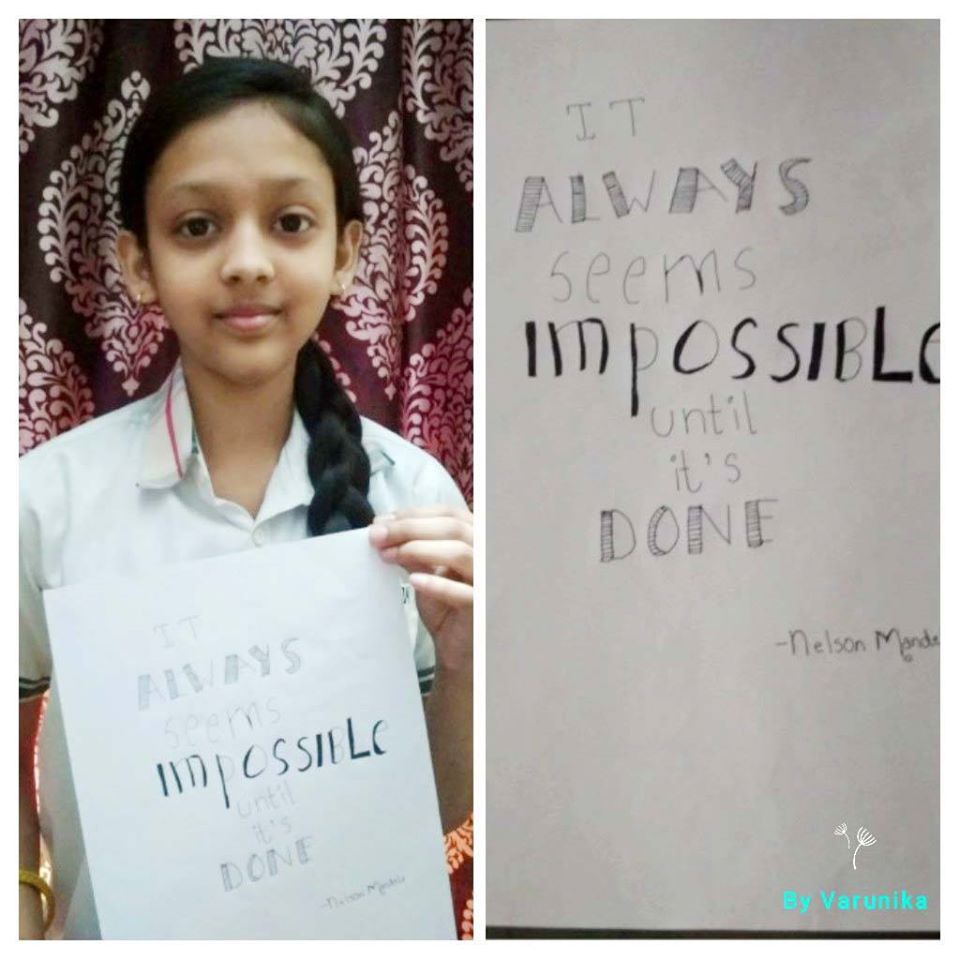 IT
ALWAYS
seems
IMPOSSIBLE
until
it's
DONE
-Nelson Mandela
IT
ALWAYS
seems
IMPOSSIBLE
until
it's
DONE
-Nelson Mande
By Varunika